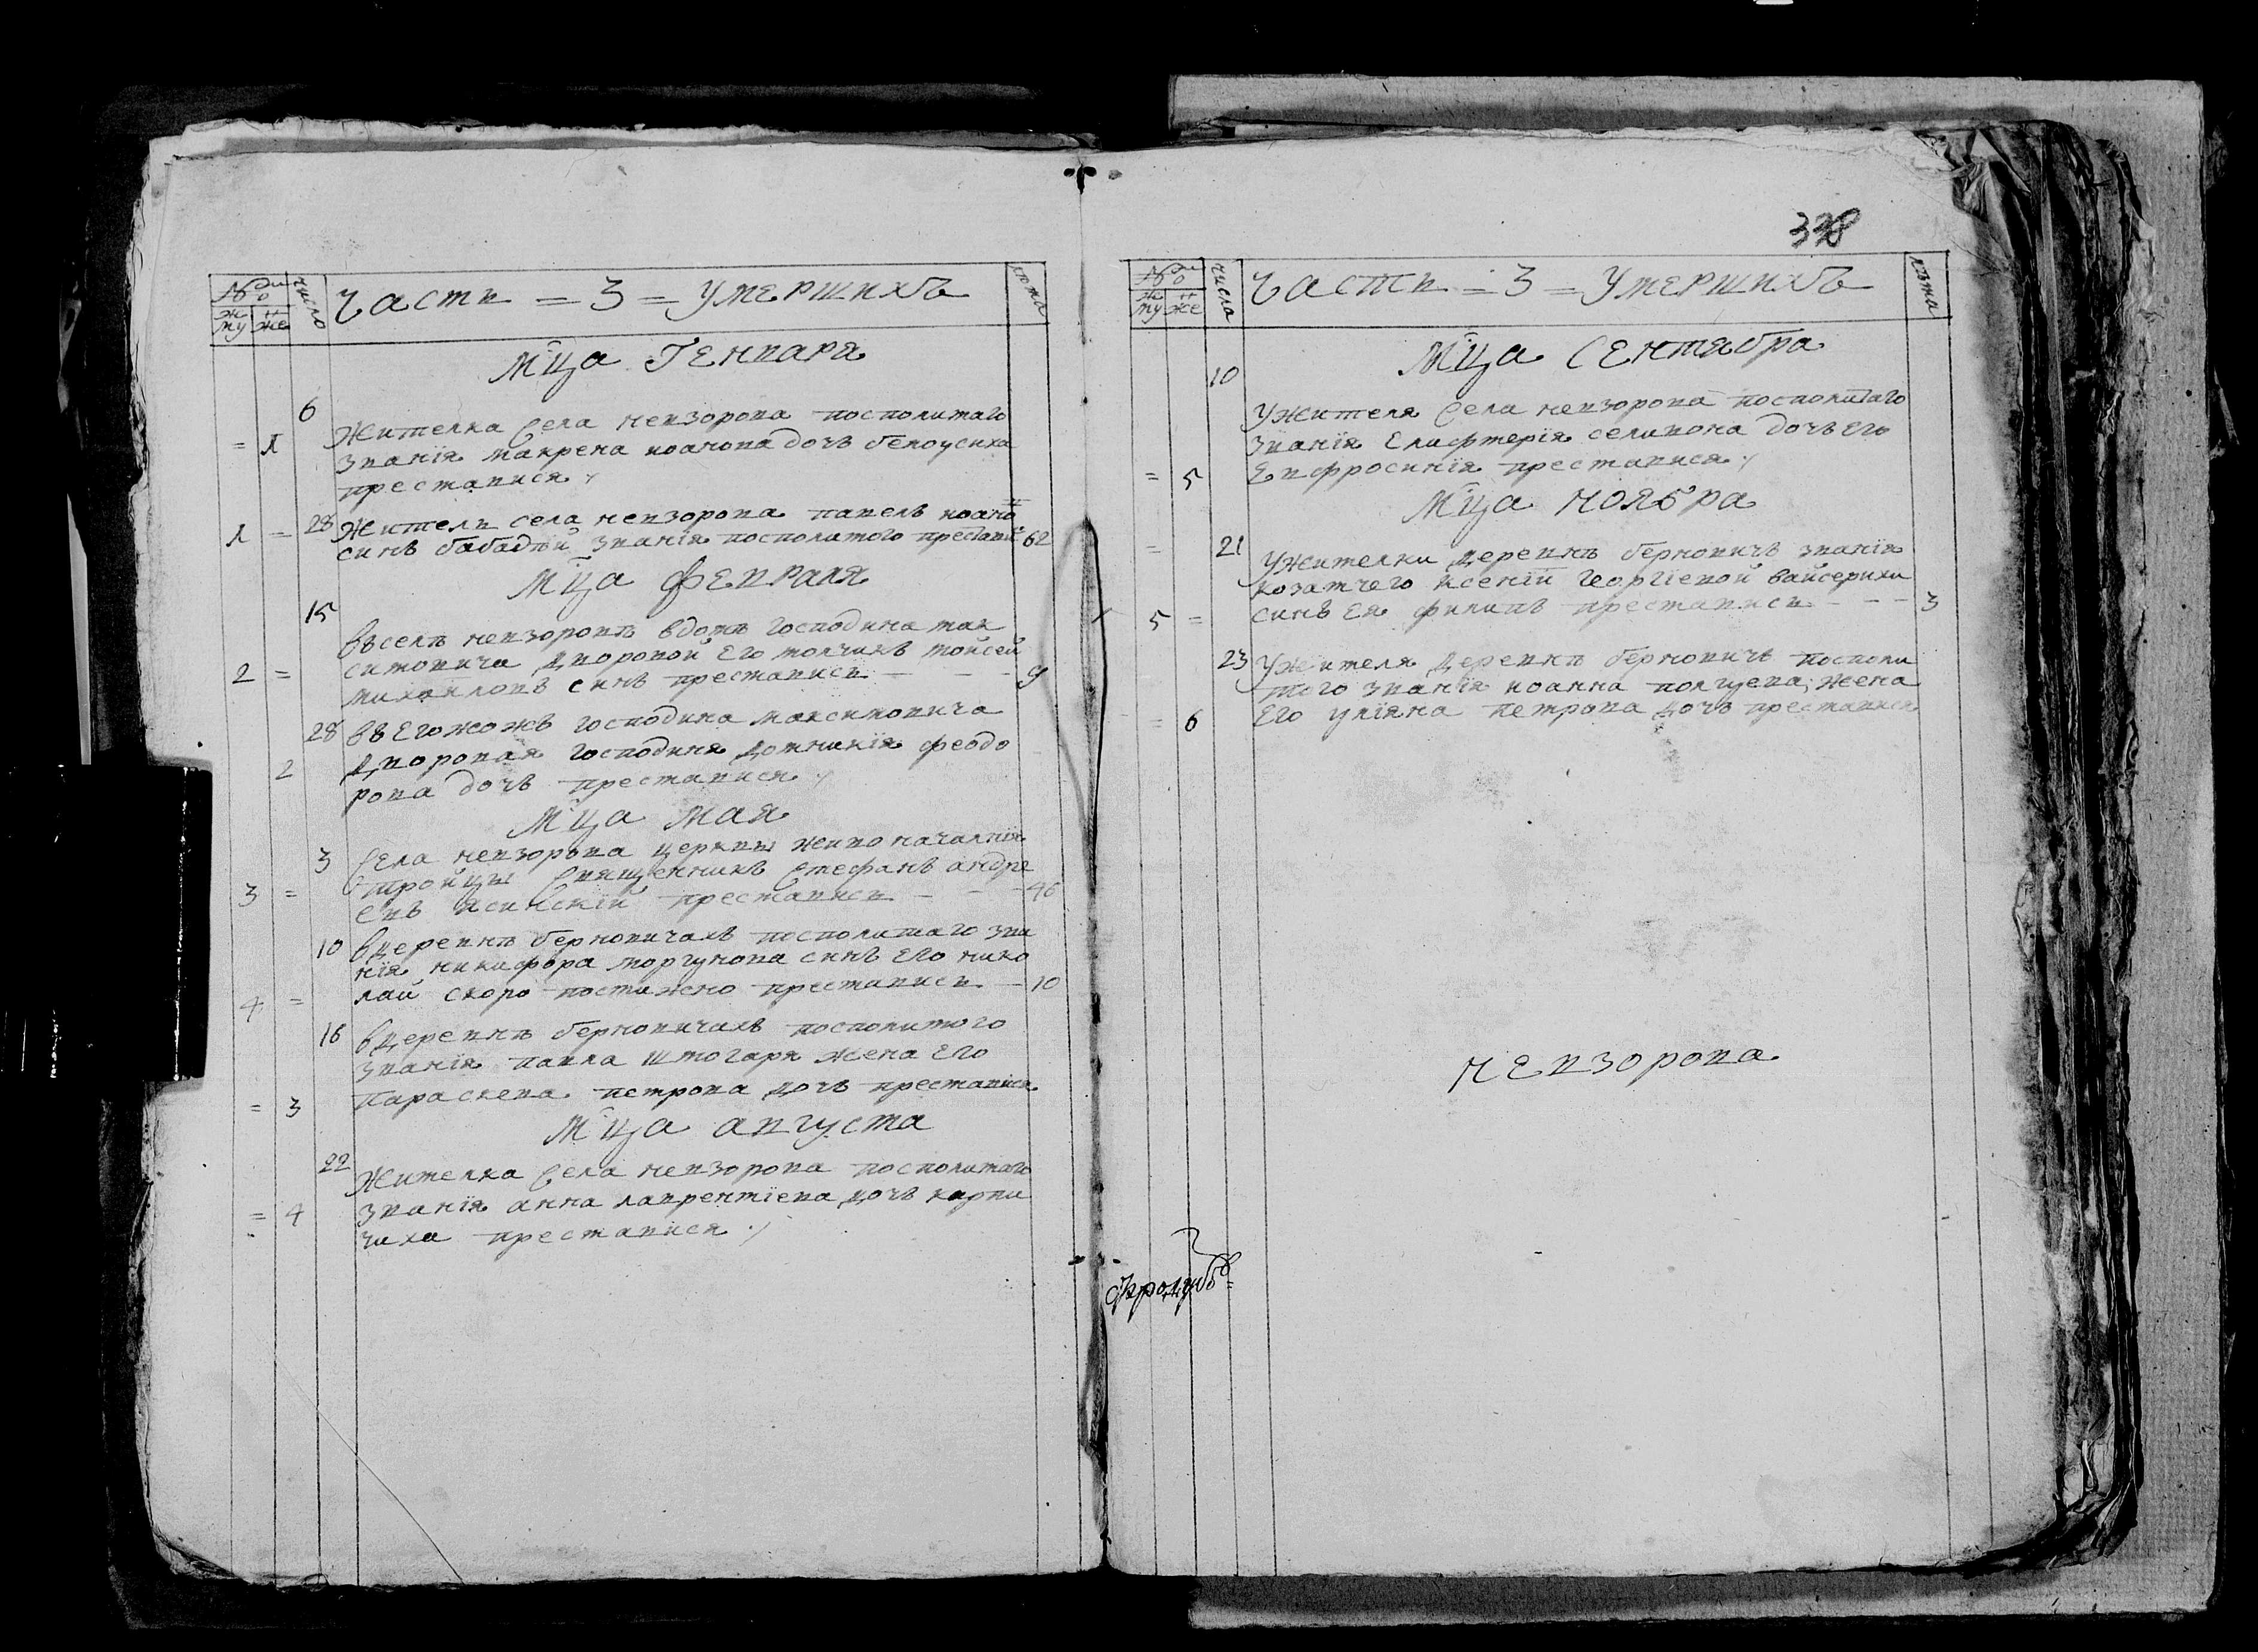 № ди о
число
Часть = 3 = Умершихъ
лѣта
му же
Мца Генваря
6
Жителка Села невзорова посполитаго
= 1 званїя макрена иоанова дочъ белоусиха
преставися
28 Жител села невзорова павелъ иоано
1 = синъ бабадѣй званїя посполитого престави 62
Мца февраля
15
въ селѣ невзоровѣ вдомѣ господина мак
симовича дворовой его молчикъ мойсей
2 = михаиловъ синъ преставися - - - 9
28 въ Егожожъ господина максимовича
2 дворовая господиня домникїя феодо
рова дочъ преставися
Мца мая
3 Села невзорова церкви живоначалнїя
тройцы Священникъ Стефанъ андре
3 = евъ ясинскїй преставися - - - 46
10 вдеревнѣ берновичахъ посполитаго зва
нїя никифора моргунова синъ его нико
4 = лай скоропостижно преставися - 10
16 вдеревнѣ берновичахъ посполитого
званїя павла штогаря жена его
= 3 параскева петрова дочъ преставися
Мца августа
22 Жителка Села невзорова посполитаго
= 4 званїя анна лаврентїева дочъ карпи
чиха преставися
338
№ ди о
числа
Часть = 3 = Умершихъ
лѣта
му же
Мца Сентября
10
Ужителя Села невзорова посполитаго
званїя Елифтерїя селивона дочъ его
= 5 Евфросинїя преставися
Мца ноября
= 21 Ужителки деревнѣ берновичъ званїя
козатчего ксенїи георгїевой вайсерихи
5 = синъ ея филипъ преставися - - - 3
23 Ужителя деревнѣ берновичъ посполи
того званїя иоанна полуева, жена
= 6 Его улїяна петрова дочъ преставися
невзорова